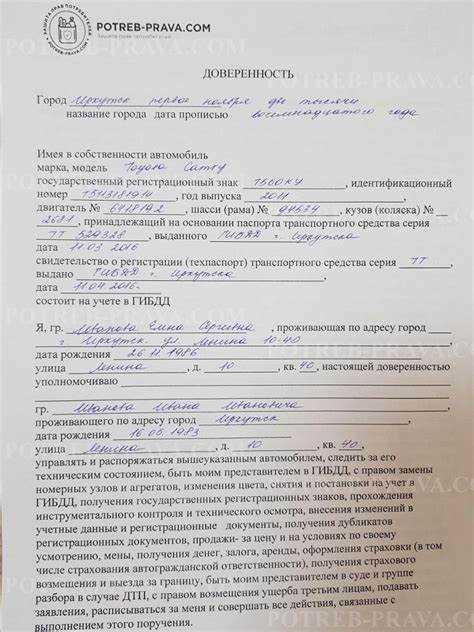 ЗАЩИТА ПРАВ ПОТРЕБИТЕЛЕЙ
POTREB-PRAVA.COM
POTREB-PRAVA.COM
Защита прав потребителей
ДОВЕРЕННОСТЬ
Город Иркутск первое ноября две тысячи
название города дата прописью восемнадцатого года
Имея в собственности автомобиль
марка, модель Toyota Camry
государственный регистрационный знак , идентификационный
номер , год выпуска 2011
двигатель № , шасси (рама) № , кузов (коляска) №
2681, принадлежащий на основании паспорта транспортного средства серия
ТТ 529328, выданного ГИБДД г. Иркутска
дата 11.03.2016
свидетельство о регистрации (техпаспорт) транспортного средства серия ТТ,
выдано ГИБДД г. Иркутска
дата 11.04.2016
состоит на учете в ГИБДД
Я, гр. Иванова Елена Сергеевна, проживающая по адресу город
г. Иркутск ул. Ленина 10-40
дата рождения 26.11.1986
улица Ленина, д. 10, кв. 40, настоящей доверенностью
уполномочиваю
гр. Иванова Ивана Ивановича
проживающего по адресу город Иркутск
дата рождения 16.05.1983
улица Ленина, д. 10, кв. 40,
управлять и распоряжаться вышеуказанным автомобилем, следить за его
техническим состоянием, быть моим представителем в ГИБДД, с правом замены
номерных узлов и агрегатов, изменения цвета, снятия и постановки на учет в
ГИБДД, получения государственных регистрационных знаков, прохождения
инструментального контроля и технического осмотра, внесения изменений в
учетные данные и регистрационные документы, получения дубликатов
регистрационных документов, продажи- за цену и на условиях по своему
усмотрению, мены, получения денег, залога, аренды, оформления страховки (в том
числе страхования автогражданской ответственности), получения страхового
возмещения и выезда за границу, быть моим представителем в суде и группе
разбора в случае ДТП, с правом возмещения ущерба третьим лицам, подавать
заявления, расписываться за меня и совершать все действия, связанные с
выполнением этого поручения.